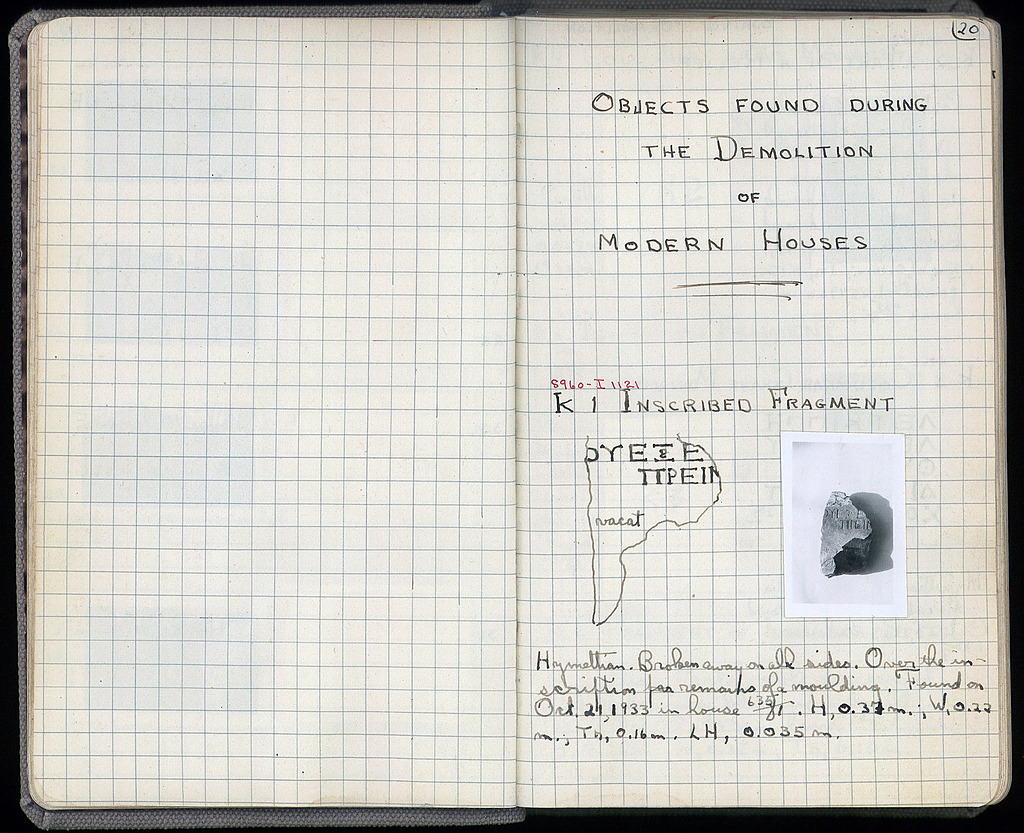 20
OBJECTS FOUND DURING
THE DEMOLITION
OF
MODERN HOUSES
8960-I 1121
K 1 INSCRIBED FRAGMENT
ΟΥΕΞΕ
ΠΡΕΙΝ
vacat
Hymettian. Broken away on all sides. Over the in-
scription remains of a moulding. Found on
Oct. 21, 1933 in house 635. H, 0.37 m.; W, 0.22
m.; Th, 0.16 m. LH, 0.035 m.